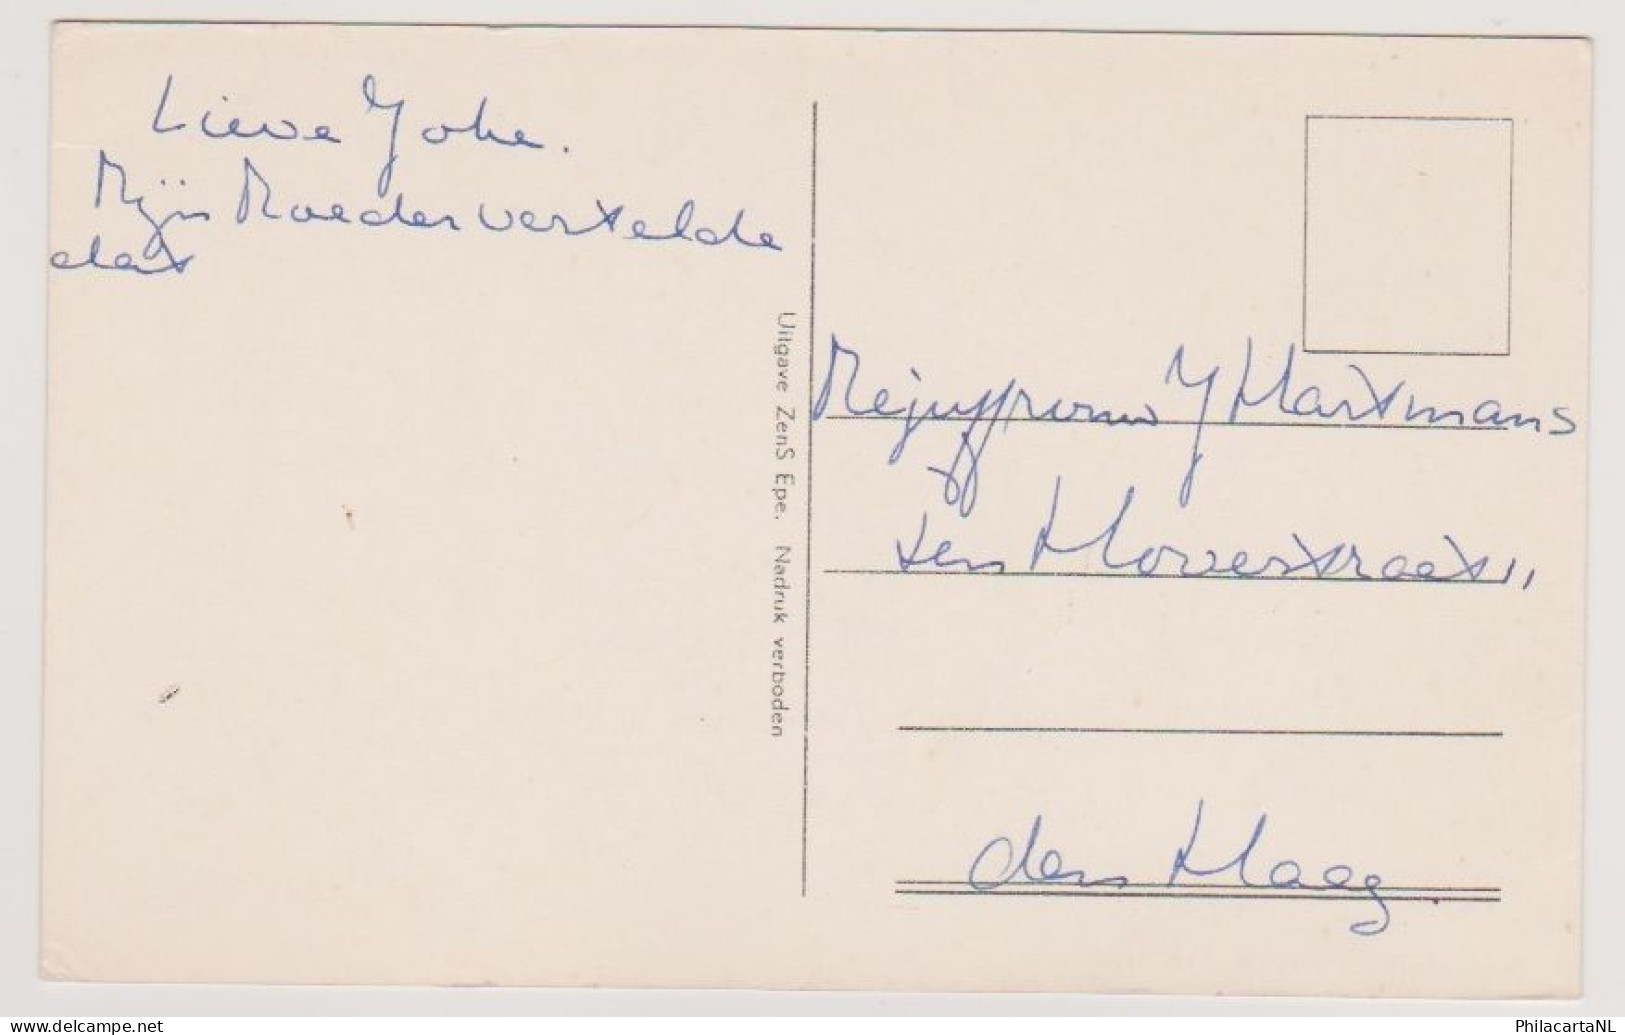 Lieve Joke.
Mijn Moeder vertelde
dat
Uitgave ZenS Epe. Nadruk verboden
Mejuffrouw J Hartmans
ten Hovestraat 11
den Haag
PhilacartaNL